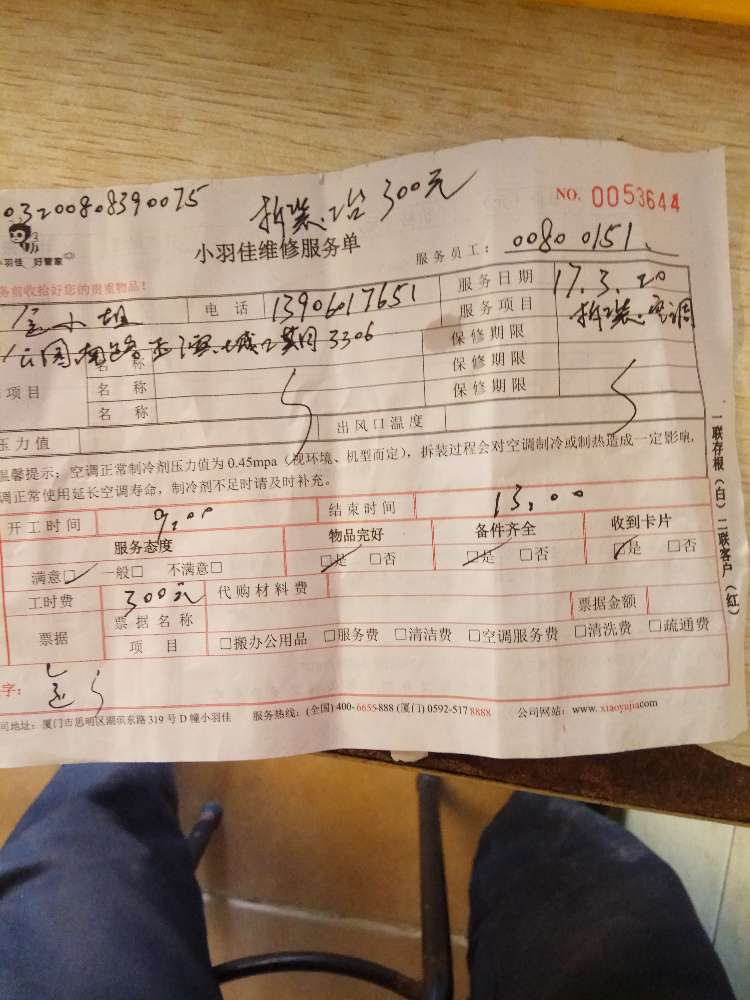 03200808390075
拆装2台300元
NO. 0053644
小羽佳 好管家
小羽佳维修服务单
服务员工: 00800151
务前收拾好您的贵重物品!
小姐 电话 13906017651 服务日期 17.3.20
3306 服务项目 拆装空调
名称 保修期限
项目 名称 保修期限
名称 保修期限
压力值 出风口温度
温馨提示:空调正常制冷剂压力值为0.45mpa(视环境、机型而定),拆装过程会对空调制冷或制热造成一定影响,
调正常使用延长空调寿命,制冷剂不足时请及时补充。
开工时间 9:00 结束时间 13:00
服务态度 物品完好 备件齐全 收到卡片
满意□ 一般□ 不满意□ □是 □否 □是 □否 □是 □否
工时费 300元 代购材料费
票据 票据名称 票据金额
项目 □搬办公用品 □服务费 □清洁费 □空调服务费 □清洗费 □疏通费
字:
司地址:厦门市思明区湖滨东路319号D幢小羽佳 服务热线:(全国)400-6655-888(厦门)0592-5178888 公司网站:www.xiaoyujia.com
一联存根(白)二联客户(红)